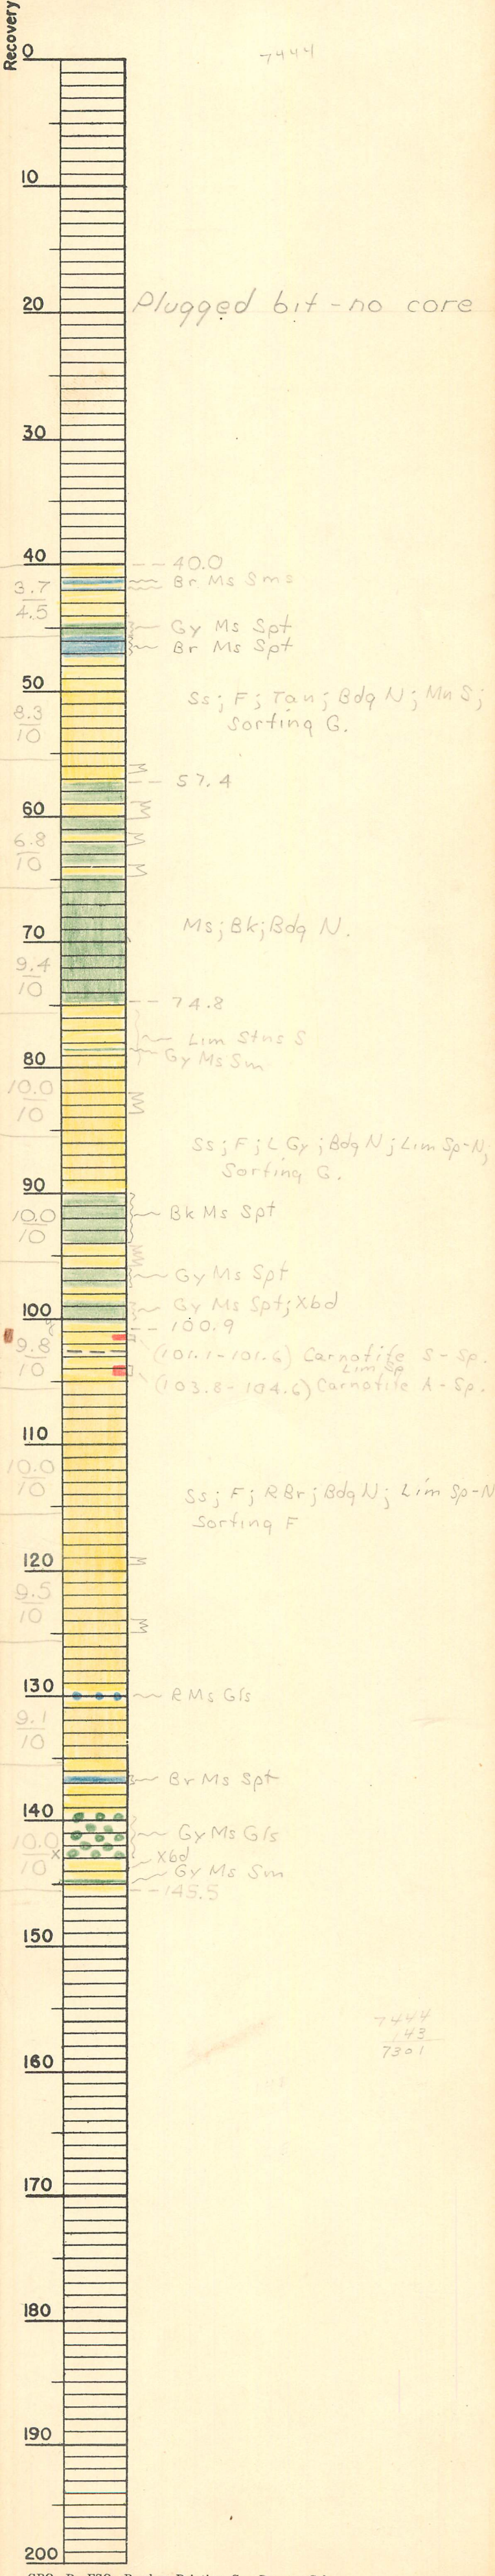 Recovery
0
7444
10
Plugged bit - no core
20
30
40
-- 40.0
Br Ms Sms
3.7
4.5
Gy Ms Spt
Br Ms Spt
50
Ss; F; Tan; Bdg N; Mn S;
Sorting G.
8.3
10
-- 57.4
60
6.8
10
Ms; Bk; Bdg N.
70
9.4
10
-- 74.8
Lim Stns S
Gy Ms Sm
80
10.0
10
Ss; F; L Gy; Bdg N; Lim Sp-N;
Sorting G.
90
Bk Ms Spt
10.0
10
Gy Ms Spt
Gy Ms Spt; Xbd
100
-- 100.9
9.8
10
(101.1-101.6) Carnotite S-Sp.
Lim Sp
(103.8-104.6) Carnotite A-Sp.
110
10.0
10
Ss; F; R Br; Bdg N; Lim Sp-N
Sorting F
120
9.5
10
130
R Ms Gls
9.1
10
Br Ms Spt
140
Gy Ms Gls
10.0
10
x
Xbd
Gy Ms Sm
-- 145.5
150
7444
143
7301
160
170
180
190
200